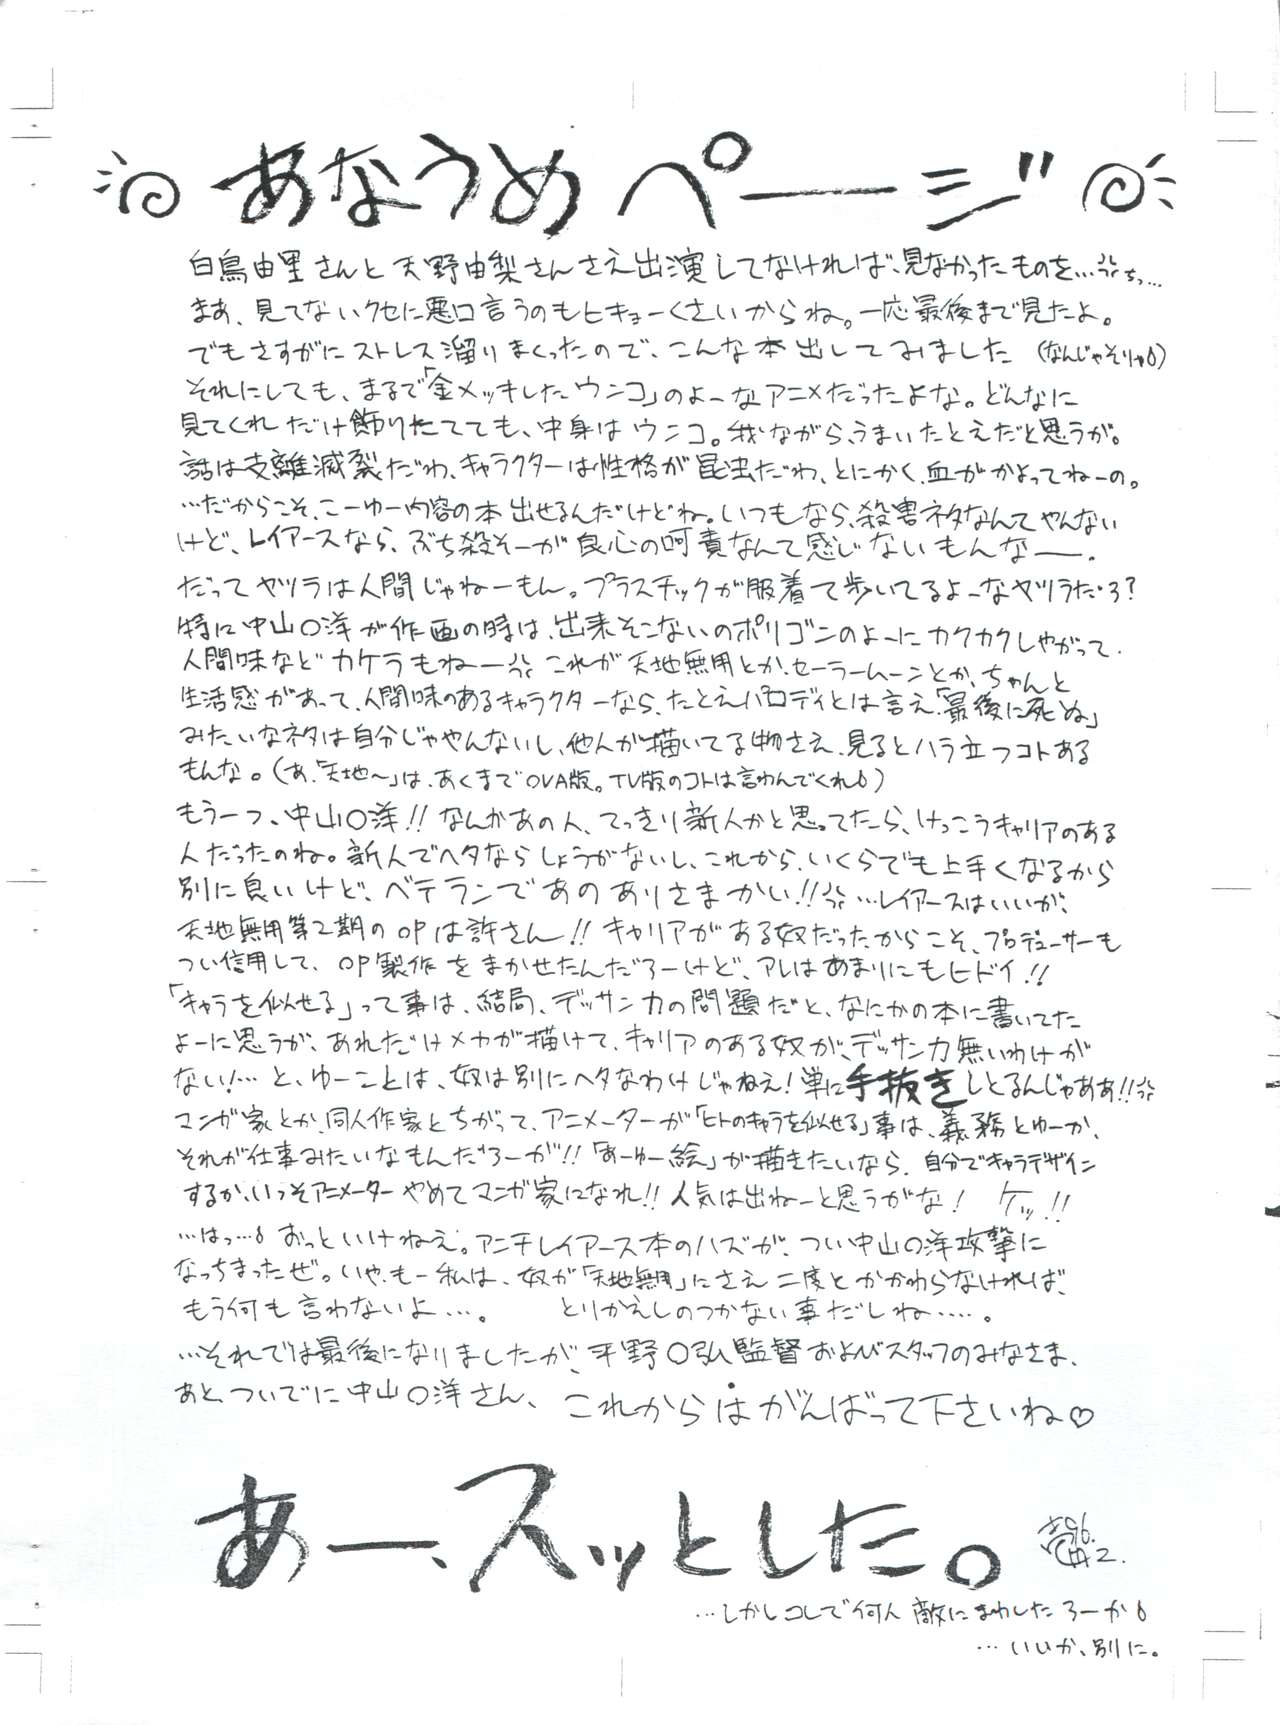 あなうめページ
白鳥由里さんと天野由梨さんさえ出演してなければ、見なかったものを…ちっ…
まあ、見てないクセに悪口言うのもヒキョーくさいからね。一応最後まで見たよ。
でもさすがにストレス溜りまくったので、こんな本出してみました（なんじゃそりゃ）
それにしても、まるで「金メッキしたウンコ」のよーなアニメだったよな。どんなに
見てくれだけ飾りたてても、中身はウンコ。我ながら、うまいたとえだと思うが。
話は支離滅裂だわ、キャラクターは性格が昆虫だわ、とにかく、血がかよってねーの。
…だからこそ、こーゆー内容の本出せるんだけどね。いつもなら、殺害ネタなんてやんない
けど、レイアースなら、ぶち殺そーが良心の呵責なんて感じないもんなー。
だってヤツラは人間じゃねーもん。プラスチックが服着て歩いてるよーなヤツラだろ？
特に中山〇洋が作画の時は、出来そこないのポリゴンのよーにカクカクしやがって、
人間味などカケラもねー これが天地無用とか、セーラームーンとか、ちゃんと
生活感があって、人間味のあるキャラクターなら、たとえパロディとは言え、「最後に死ぬ」
みたいなネタは自分じゃやんないし、他人が描いてる物さえ、見るとハラ立つコトある
もんな。（あ、「天地〜」は、あくまでOVA版。TV版のコトは言わんでくれ）
もう一つ、中山〇洋!! なんかあの人、てっきり新人かと思ってたら、けっこうキャリアのある
人だったのね。新人でヘタならしょうがないし、これから、いくらでも上手くなるから
別に良いけど、ベテランであのありさまかい!! …レイアースはいいが、
天地無用第2期のOPは許さん!! キャリアがある奴だったからこそ、プロデューサーも
つい信用して、OP製作をまかせたんだろーけど、アレはあまりにもヒドイ!!
「キャラを似せる」って事は、結局、デッサン力の問題だと、なにかの本に書いてた
よーに思うが、あれだけメカが描けて、キャリアのある奴が、デッサン力無いわけが
ない!… と、ゆーことは、奴は別にヘタなわけじゃねえ! 単に手抜きしとるんじゃああ!!
マンガ家とか、同人作家とちがって、アニメーターが「ヒトのキャラを似せる」事は、義務とゆーか、
それが仕事みたいなもんだろーが!! 「あーゆー絵」が描きたいなら、自分でキャラデザイン
するか、いっそアニメーターやめてマンガ家になれ!! 人気は出ねーと思うがな! ケッ!!
…はっ… おっといけねえ。アンチレイアース本のハズが、つい中山〇洋攻撃に
なっちまったぜ。いや、もー私は、奴が「天地無用」にさえ二度とかかわらなければ、
もう何も言わないよ…。 とりかえしのつかない事だしね……。
…それでは最後になりましたが、平野〇弘監督およびスタッフのみなさま、
あと、ついでに中山〇洋さん、これからはがんばって下さいね♡
あー、スッとした。
'96. 2.
…しかしコレで何人敵にまわしたろーか
…いいか、別に。